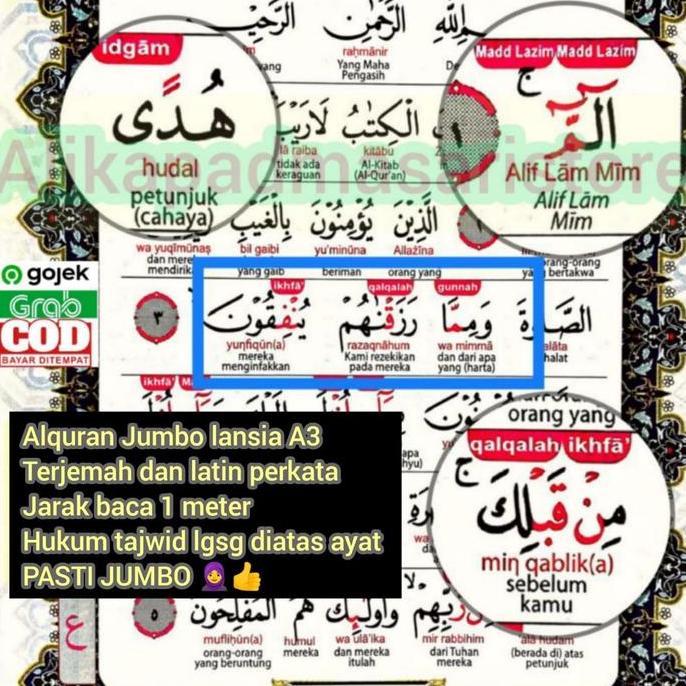 اللّٰهِ الرَّحْمٰنِ الرَّحِيْمِ
raḥmānir
Yang Maha
Pengasih
idgām
هُدًى
hudal
petunjuk
(cahaya)
Madd Lazim Madd Lazim
الۤمّۤ ۚ
Alif Lām Mīm
Alif Lām
Mīm
١
الْكِتٰبُ لَا رَيْبَ
kitābu
lā raiba
Al-Kitab
(Al-Qur'an)
tidak ada
keraguan
Alikapadmasariestore
الَّذِيْنَ يُؤْمِنُوْنَ بِالْغَيْبِ
Allażīna
yu'minūna
bil gaibi
wa yuqīmūnaṣ
orang yang
beriman
yang gaib
dan mere
mendirik
orang-orang
yang bertakwa
gojek
Grab
COD
BAYAR DITEMPAT
gunnah
qalqalah
ikhfā'
الصَّلٰوةَ وَمِمَّا رَزَقْنٰهُمْ يُنْفِقُوْنَ
٣
alāta
halat
wa mimmā
dan dari apa
yang (harta)
razaqnāhum
Kami rezekikan
pada mereka
yuηfiqūn(a)
mereka
menginfakkan
ikhfā'
orang yang
qalqalah ikhfā'
مِنْ قَبْلِكَ ۚ
miη qablik(a)
sebelum
kamu
Alquran Jumbo lansia A3
Terjemah dan latin perkata
Jarak baca 1 meter
Hukum tajwid lgsg diatas ayat
PASTI JUMBO 🧕👍
رَّبِّهِمْ وَاُولٰۤىِٕكَ هُمُ الْمُفْلِحُوْنَ
٥
ع
alā hudam
(berada di) atas
petunjuk
mir rabbihim
dari Tuhan
mereka
wa ulā'ika
dan mereka
itulah
humul
mereka
mufliḥūn(a)
orang-orang
yang beruntung